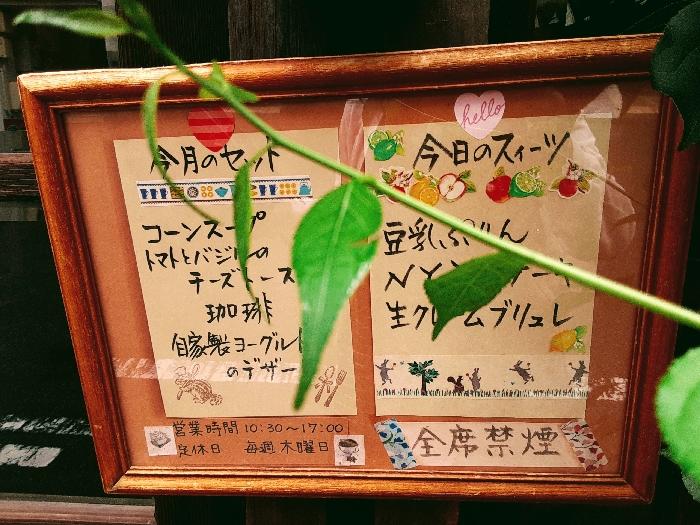 今月のセット
コーンスープ
トマトとバジルの
チーズトース
珈琲
自家製ヨーグルト
のデザー
hello
今日のスィーツ
豆乳ぷりん
NY ーキ
生クリームブリュレ
営業時間 10:30~17:00
定休日 毎週木曜日
全席禁煙